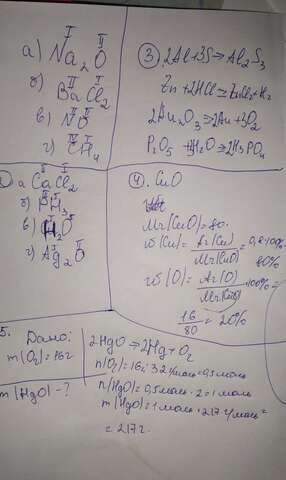 а) Na₂O
I II
б) BaCl₂
II I
в) NO
II II
г) CH₄
IV I
3. 2Al+3S→Al₂S₃
Zn+2HCl=ZnCl₂+H₂
2Au₂O₃→4Au+3O₂
P₂O₅+3H₂O→2H₃PO₄
а CaCl₂
II I
б) PH₃
в) H₂O
г) Ag₂O
I II
4. CuO
Mr(CuO)=80.
w(Cu)=Ar(Cu)/Mr(CuO)=0,8·100%
80%
w(O)=Ar(O)/Mr(CuO)·100%=
16/80=20%
5. Дано:
m(O₂)=16г
m(HgO)-?
2HgO→2Hg+O₂
n(O₂)=16:32г/моль=0,5моль
n(HgO)=0,5моль·2=1моль
m(HgO)=1моль·217г/моль=
=217г.